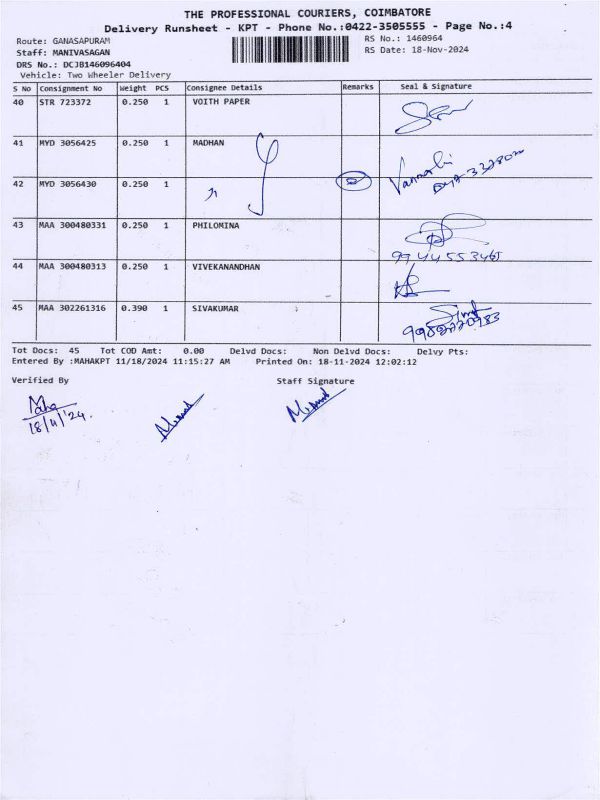 THE PROFESSIONAL COURIERS, COIMBATORE
Delivery Runsheet - KPT - Phone No.:0422-3505555 - Page No.:4
Route: GANASAPURAM RS No.: 1460964
Staff: MANIVASAGAN RS Date: 18-Nov-2024
DRS No.: DCJB146096404
Vehicle: Two Wheeler Delivery
S No Consignment No Weight PCS Consignee Details Remarks Seal & Signature
40 STR 723372 0.250 1 VOITH PAPER
41 MYD 3056425 0.250 1 MADHAN
42 MYD 3056430 0.250 1
43 MAA 300480331 0.250 1 PHILOMINA
9944553465
44 MAA 300480313 0.250 1 VIVEKANANDHAN
45 MAA 302261316 0.390 1 SIVAKUMAR
Tot Docs: 45 Tot COD Amt: 0.00 Delvd Docs: Non Delvd Docs: Delvy Pts:
Entered By :MAHAKPT 11/18/2024 11:15:27 AM Printed On: 18-11-2024 12:02:12
Verified By Staff Signature
Maha
18/11/'24.